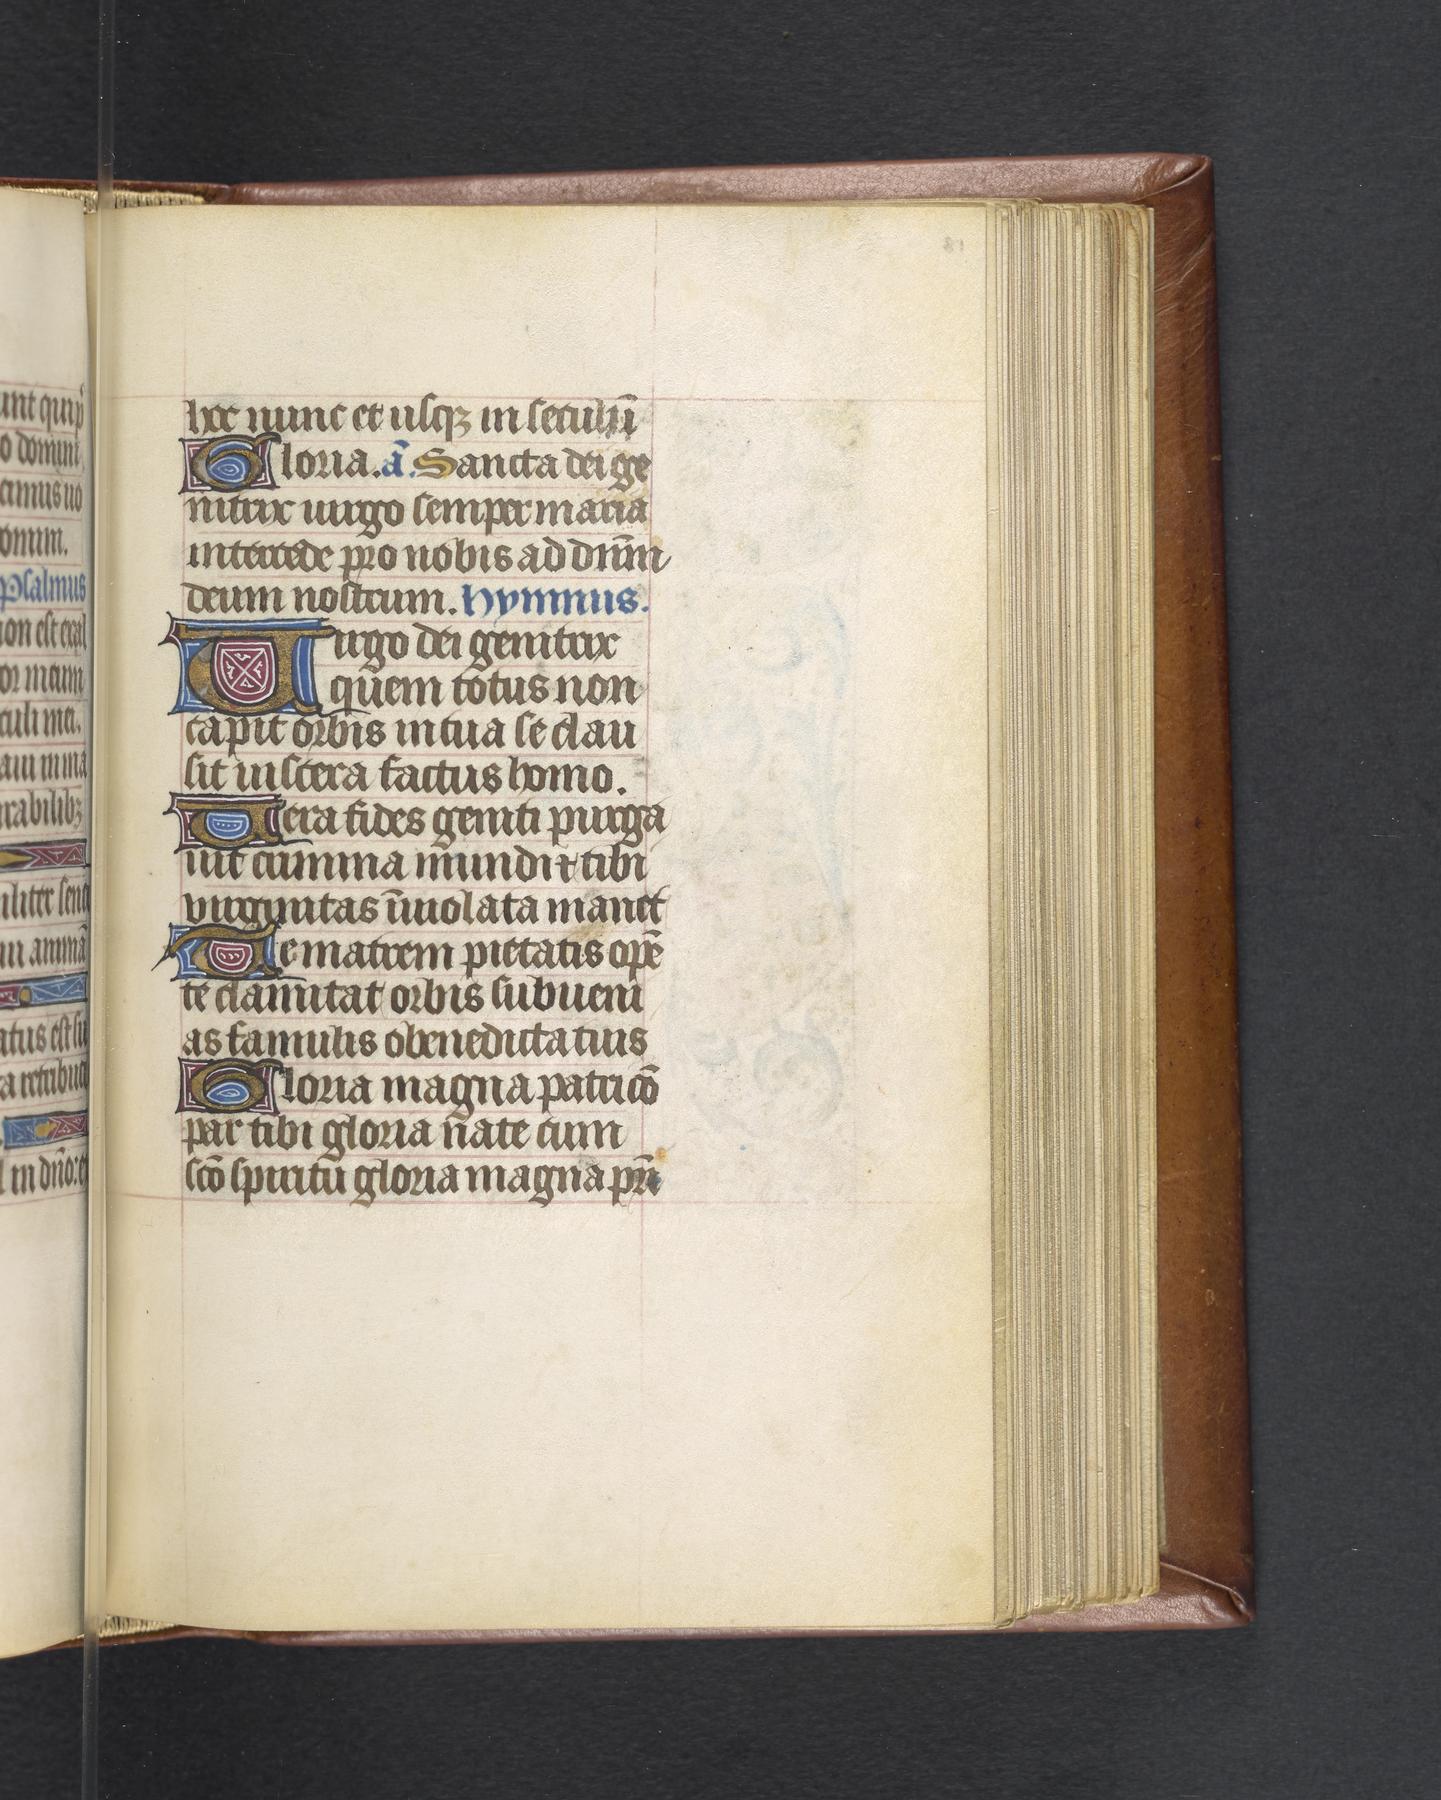 unt qui p̄
o domini
cimus uo
onum.
Psalmus
ion est exal
or meum
culi mei.
aui in ma
irabilibꝫ
iliter senti
ui animā
atus est su
a retribuci
l in dn̄o: et
81
hoc nunc et usqꝫ in seculū
Gloria. ā. Sancta dei ge
nitrix uirgo semper maria
intercede pro nobis ad dn̄m
deum nostrum. Hymnus.
Uirgo dei genitrix
quem totus non
capit orbis in tua se clau
sit uiscera factus homo.
Uera fides geniti purga
uit crimina mundi ⁊ tibi
virginitas īuiolata manet
Te matrem pietatis opē
te clamitat orbis subueni
as famulis o benedicta tuis
Gloria magna patri cō
par tibi gloria nate cum
scō spiritu gloria magna pr̄i